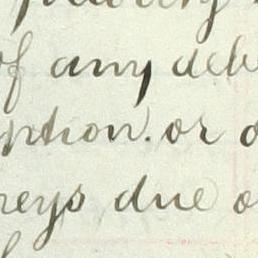 of any deb
ption. or o
neys due o